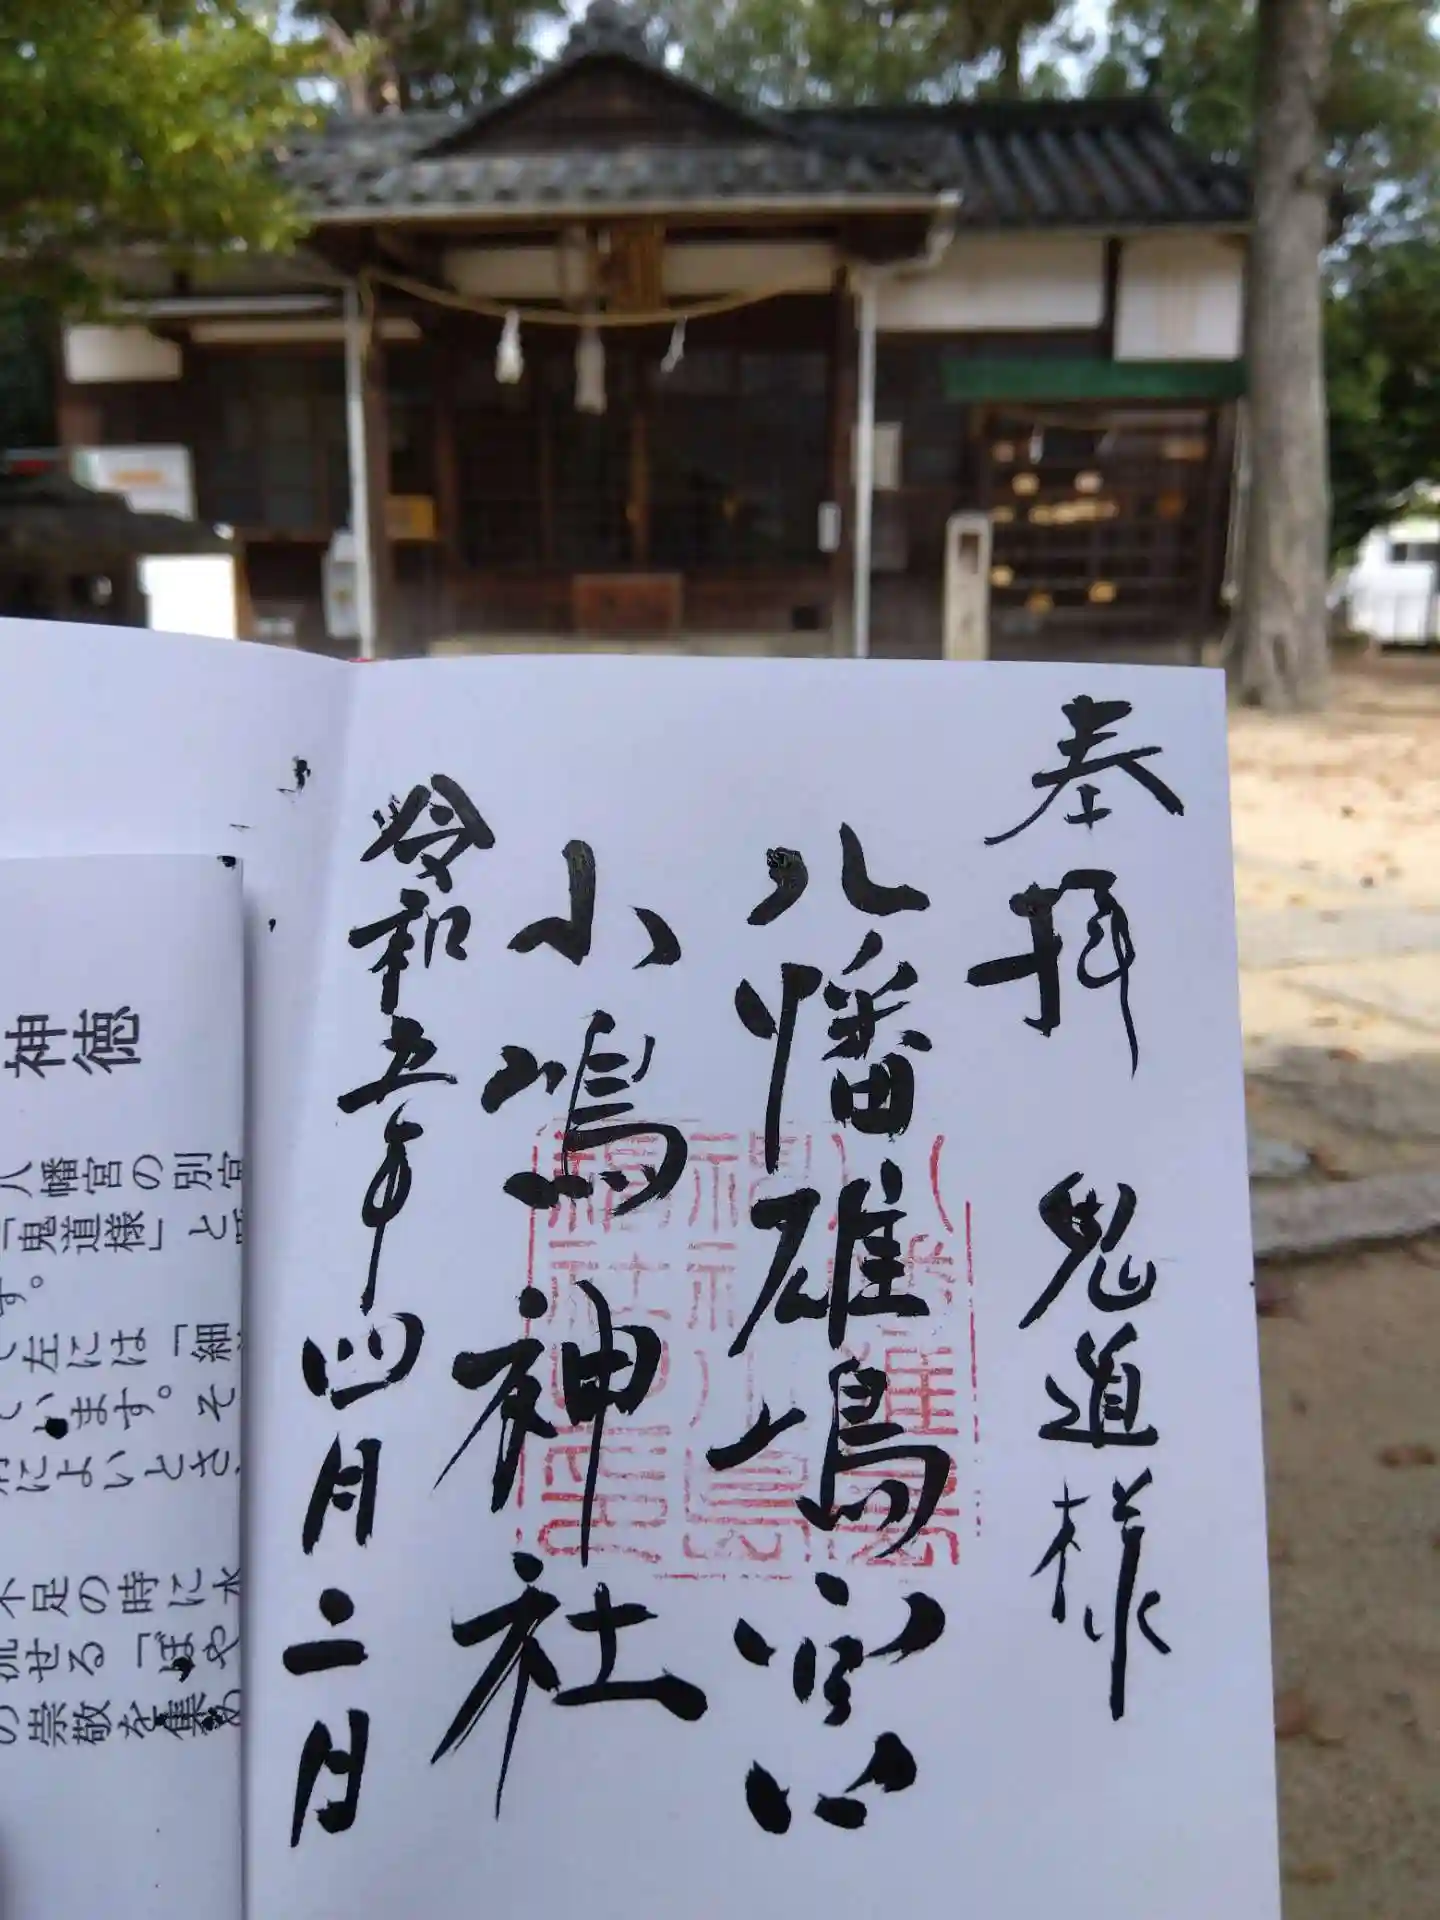 奉拝　鬼道様
八幡雄嶋宮
小嶋神社
令和五年四月二日
神徳
八幡宮の別宮
「鬼道様」と
す。
左には「細
います。そ
によいとさ
不足の時に水
流せる「ぼや
の崇敬を集め